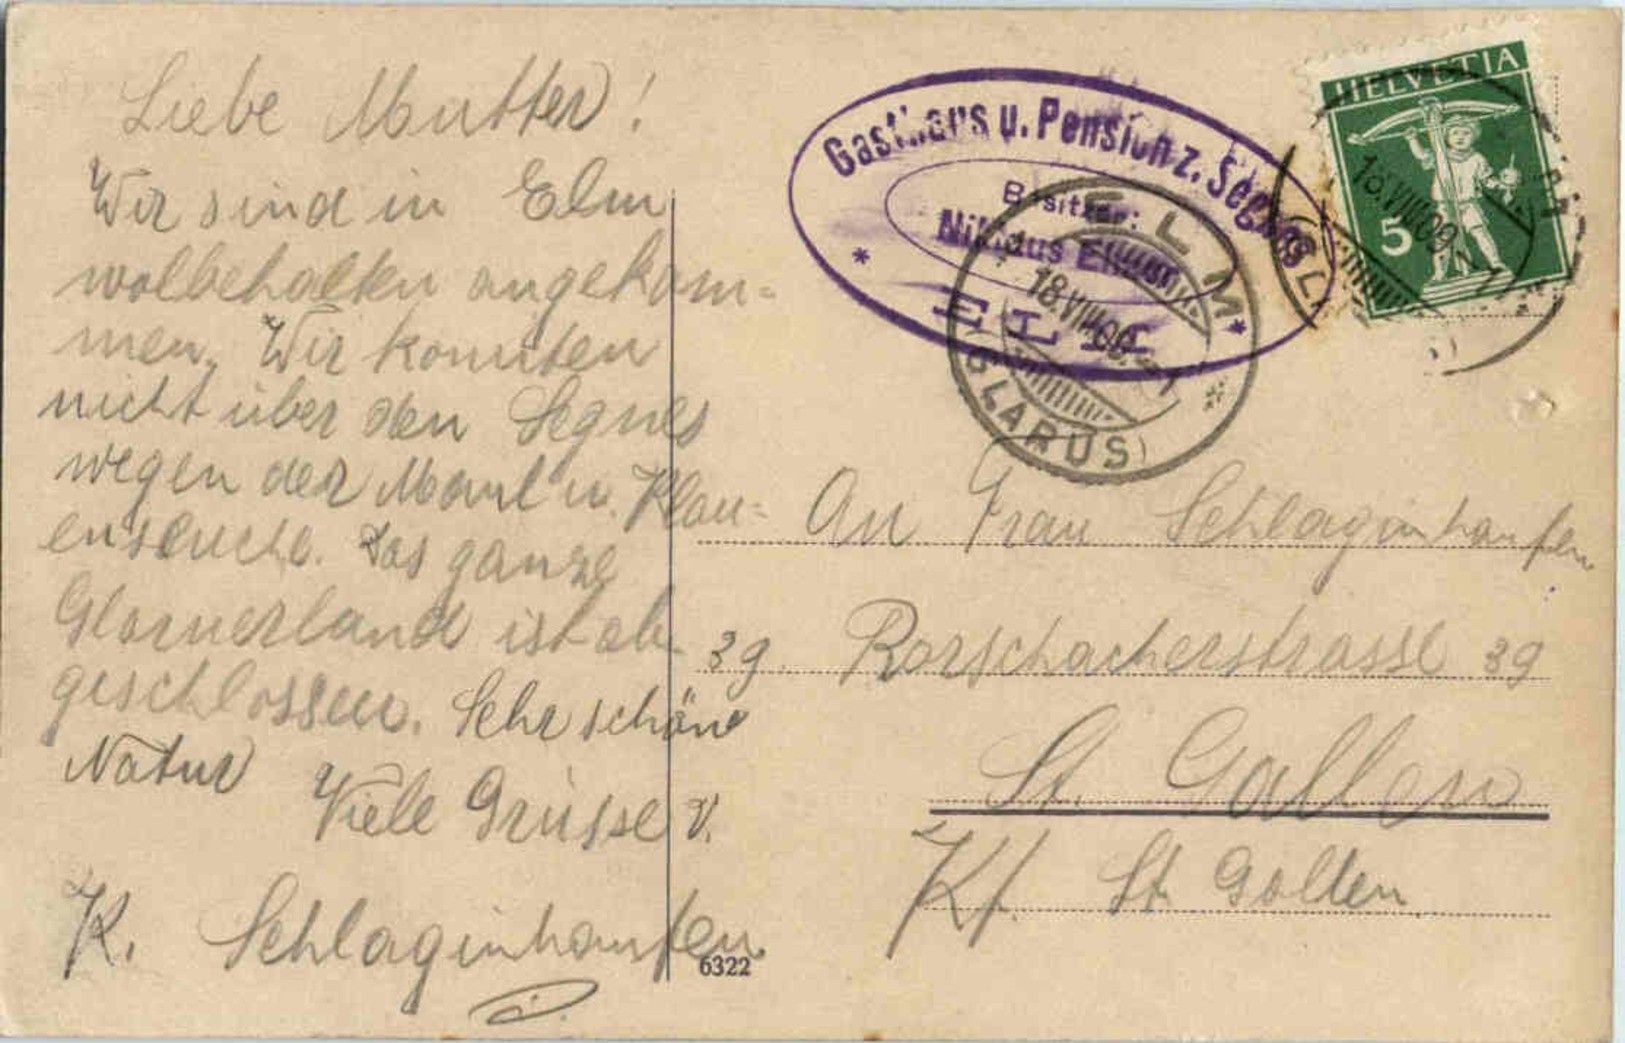 Liebe Mutter!
Wir sind in Elm
wolbehalten angekom=
men. Wir konnten
nicht über den Segnes
wegen der Maul u. Klau=
enseuche. Das ganze
Glarnerland ist ab
geschlossen. Sehr schöne
Natur
Viele Grüsse v.
K. Schlaginhaufen
Gasthaus u. Pension z. Segnes
Besitzer:
Niklaus Elmer
* ELM *
ELM
18.VIII.09.
(GLARUS)
HELVETIA
18.VIII.09.
5
An Frau Schlaginhaufen
39. Rorschacherstrasse 39
St. Gallen
Kt. St. Gallen
6322